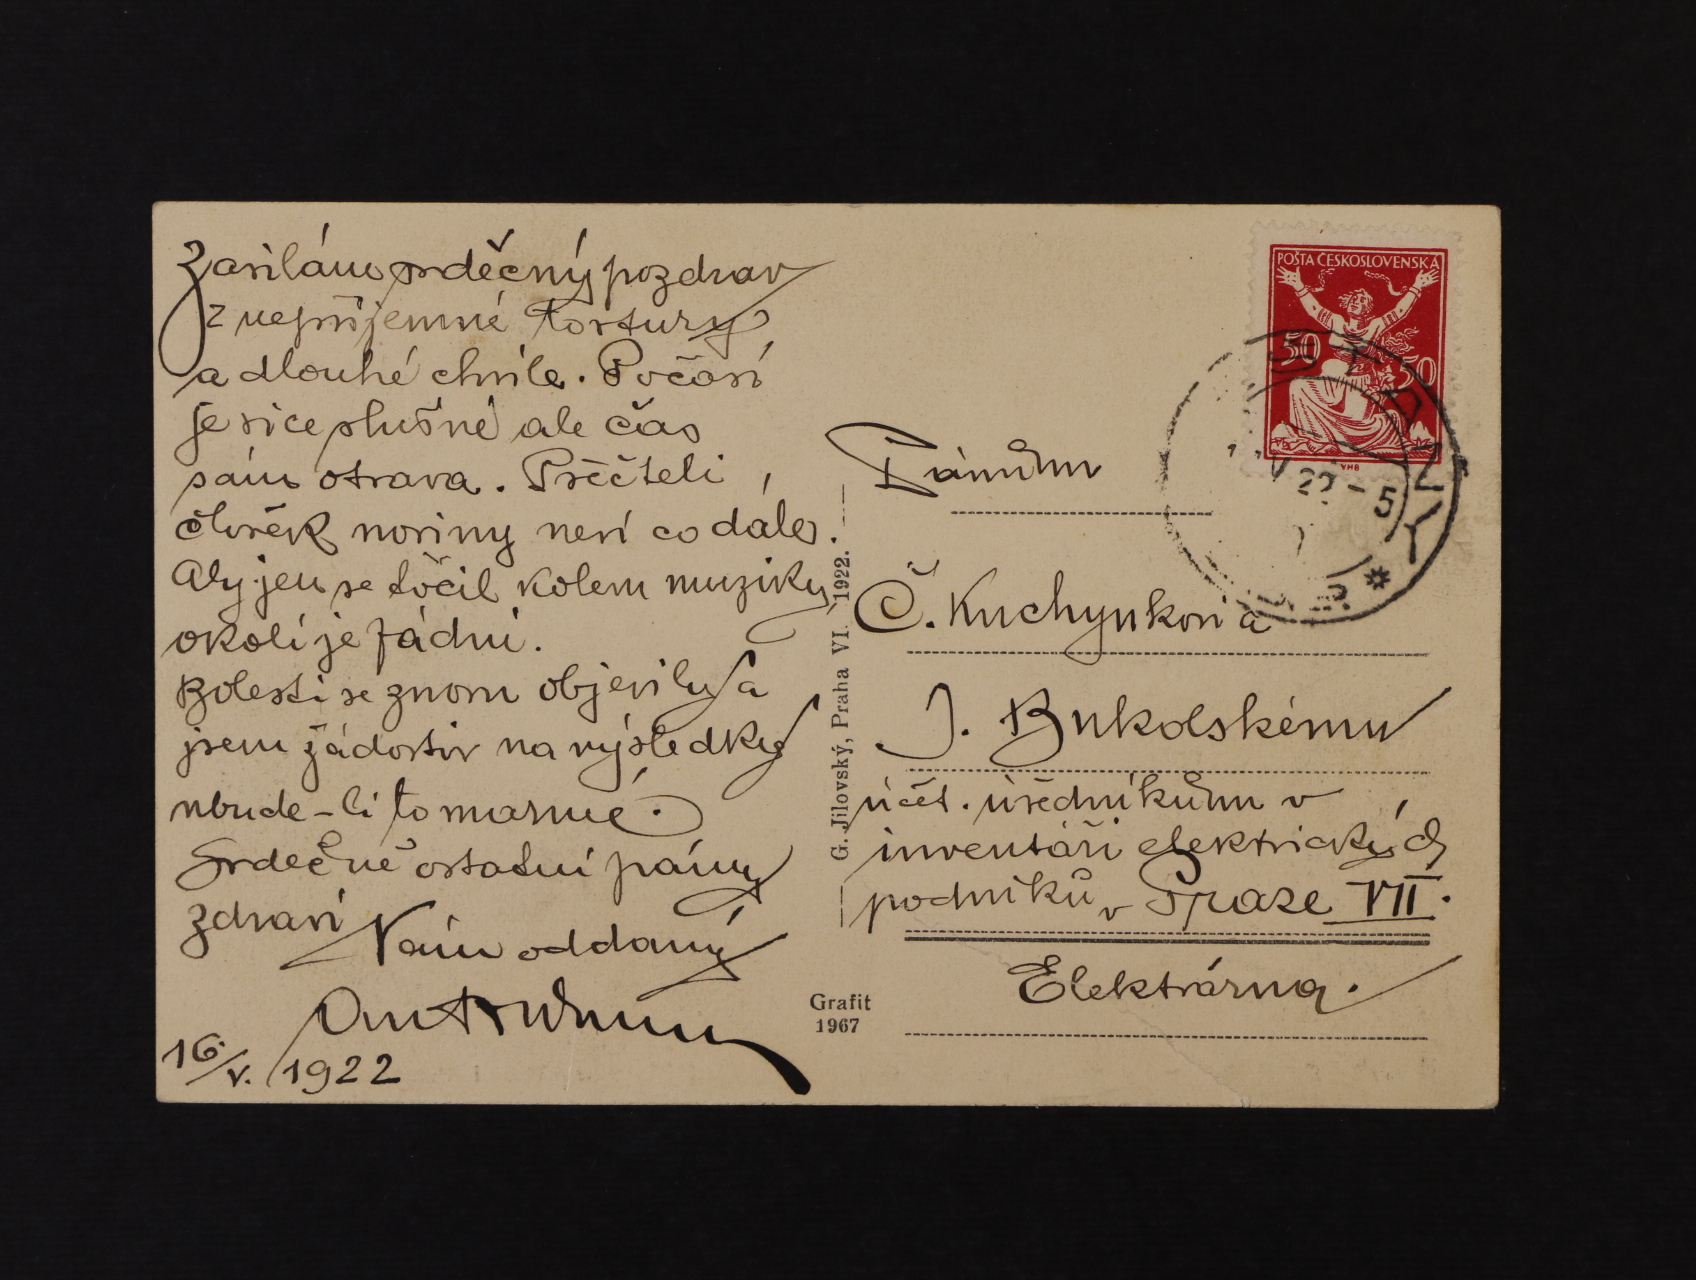 Zasílám srdečný pozdrav
z nepříjemné tortury
a dlouhé chvíle. Počasí
je sice slušné ale čas
sám otrava. Přečteli
člověk noviny neví co dále.
Aby jen se točil kolem muziky
okolí je fádní.
Bolesti se znovu objevily a
jsem žádostiv na výsledky
nbude-li to marné.
Srdečně ostatní pány
zdraví
Vám oddaný
16./V. 1922
G. Jilovský, Praha VI. 1922.
Grafit
1967
POŠTA ČESKOSLOVENSKÁ
50 50
VHB
22-5
Pánům
Č. Kuchynkovi a
J. Bukolskému
účet. úředníkům v
inventáři elektrických
podniků v Praze VII.
Elektrárna.